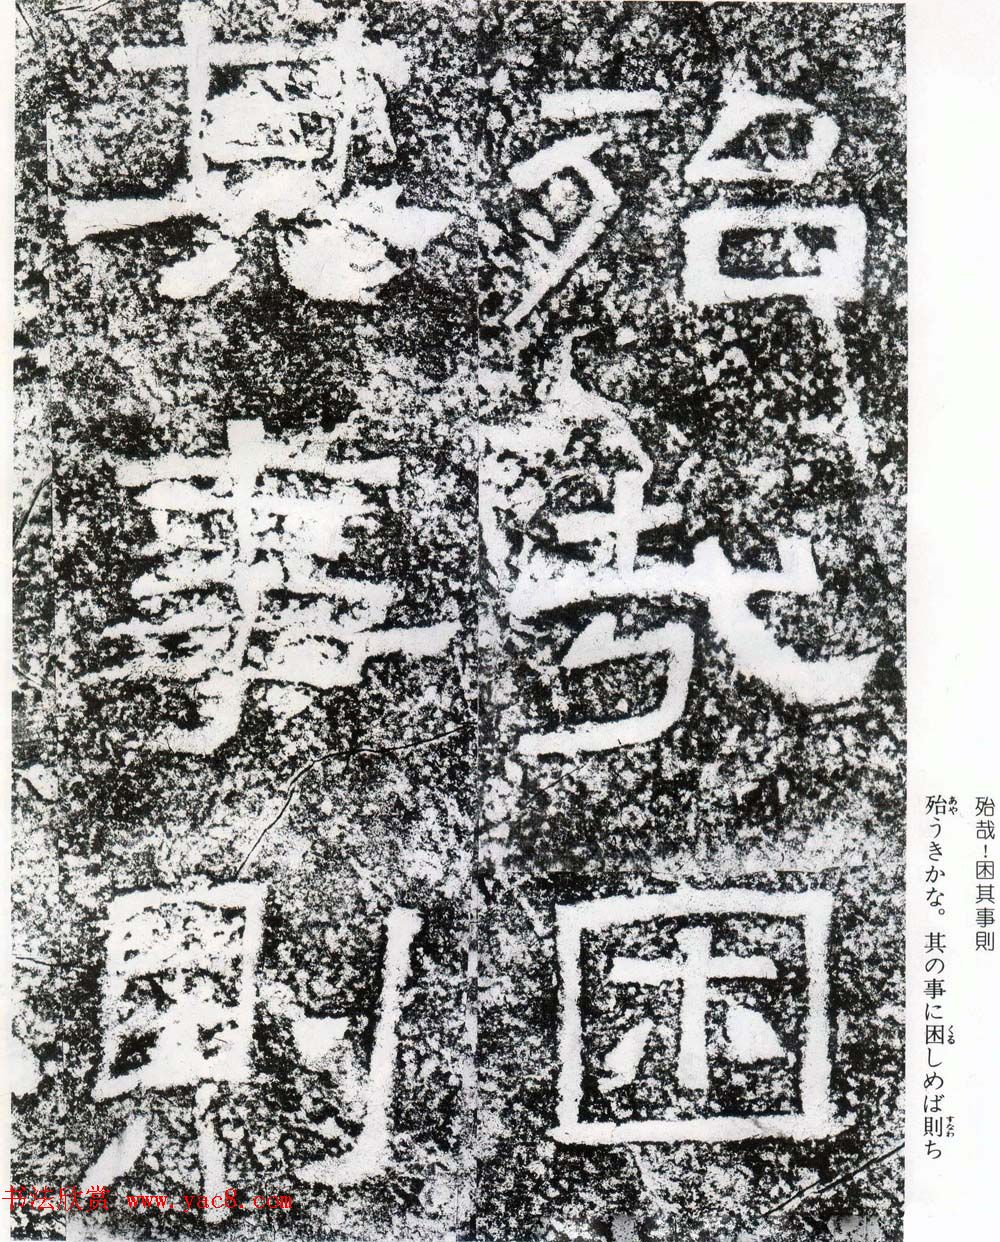 殆哉困
其事則
殆哉！困其事則
殆うきかな。其の事に困しめば則ち
あや
くる
すなわ
书法欣赏 www.yac8.com